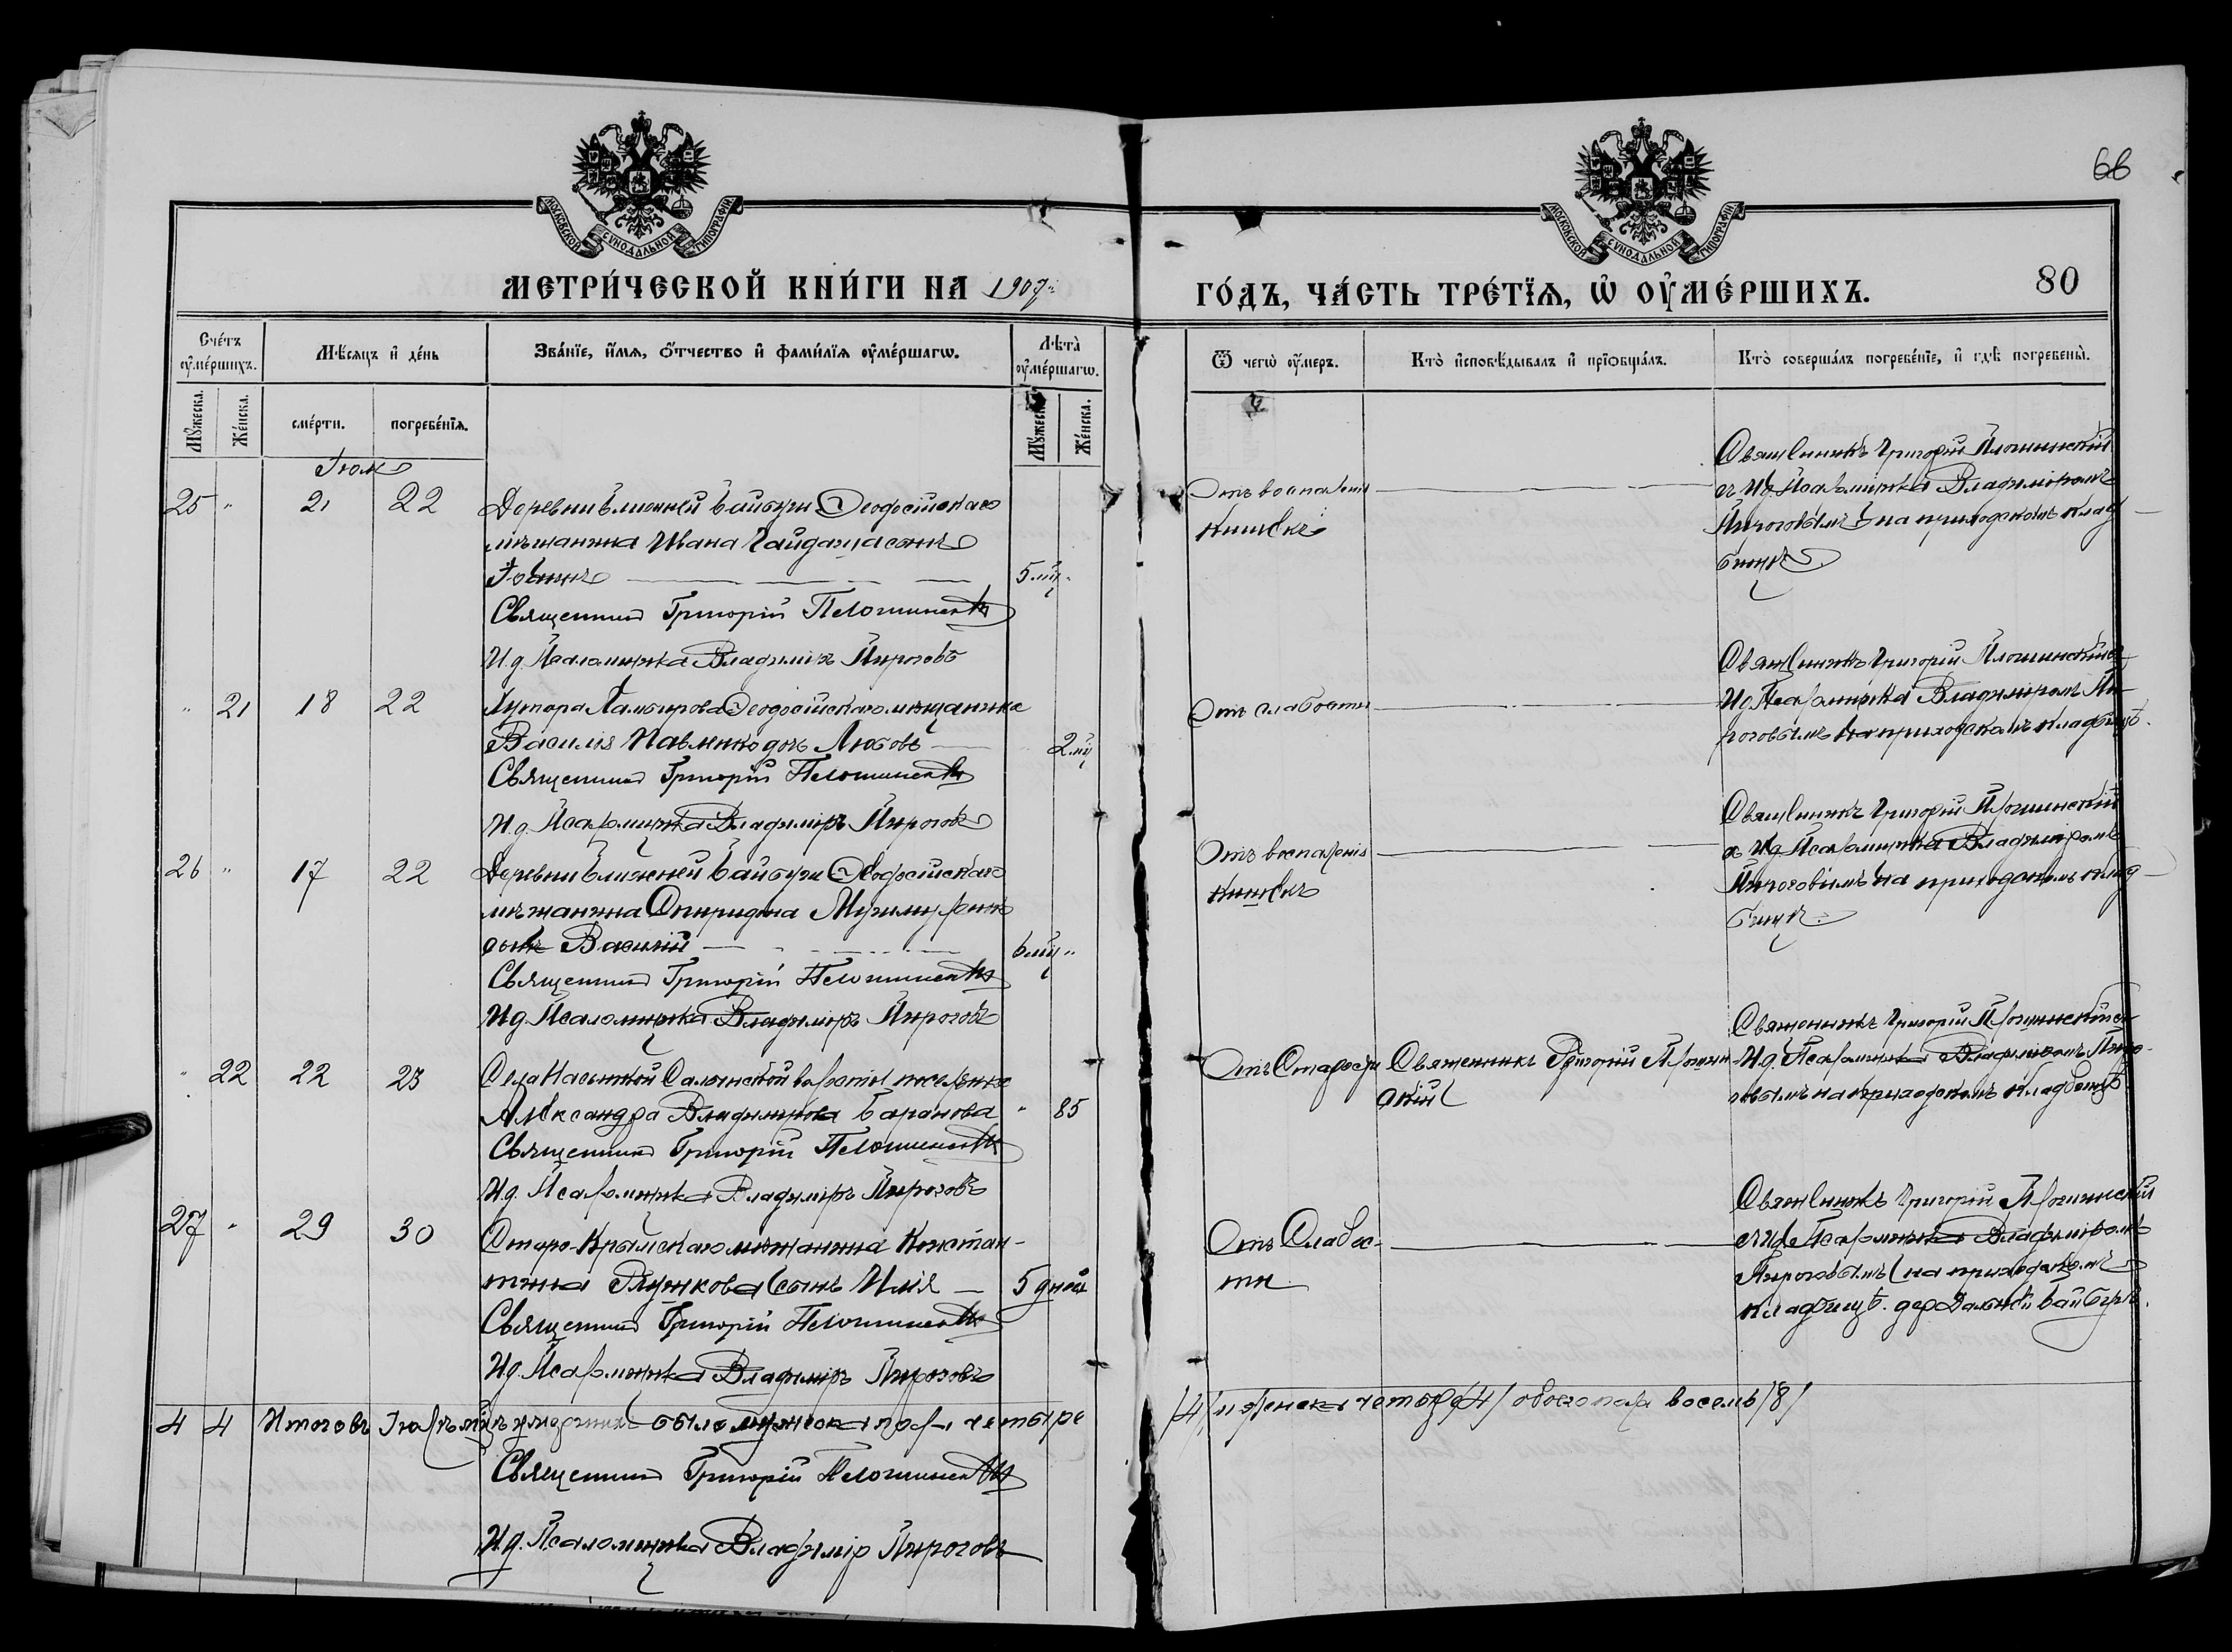 66
МОСКОВСКОЙ СУНОДАЛЬНОЙ ТИПОГРАФІИ
МОСКОВСКОЙ СУНОДАЛЬНОЙ ТИПОГРАФІИ
МЕТРИ́ЧЕСКОЙ КНИ́ГИ НА 1907
ГО́ДЪ, ЧА́СТЬ ТРЕ́ТЇѦ, Ѡ҆ ОУ҆МЕ́РШИХЪ.
80
Сче́тъ оу҆ме́ршихъ.
Мѣ́сяцъ и҆ де́нь
Зва́нїе, и҆́мѧ, ѻ҆́тчество и҆ фами́лїѧ оу҆ме́ршагѡ.
Лѣта̀ оу҆ме́ршагѡ.
Ѿ чегѡ̀ оу҆́меръ.
Кто̀ и҆сповѣ́дывалъ и҆ прїѻбща́лъ.
Кто̀ соверша́лъ погребе́нїе, и҆ гдѣ̀ погребены̀.
Мꙋ́жеска.
Же́нска.
сме́рти.
погребе́нїѧ.
Мꙋ́жеска.
Же́нска.
Іюль
25 " 21 22 Деревни Ближней Байбуги Ѳеодосійскаго
мѣщанина Ивана Гайдаша сынъ
Іоаннъ — 5 мц "
Священникъ Григорій Плошинскій
И.д. Псаломщика Владиміръ Пироговъ
Отъ воспаленія
кишекъ
Священникъ Григорій Плошинскій
съ И.д. Псаломщика Владиміромъ
Пироговымъ на приходскомъ клад-
бищѣ
" 21 18 22 Хутора Ѳеодосійскаго мѣщанина
Василія Павленко дочь Любовь — 2 мц
Священникъ Григорій Плошинскій
И.д. Псаломщика Владиміръ Пироговъ
Отъ слабости
Священникъ Григорій Плошинскій съ
И.д. Псаломщика Владиміромъ Пи-
роговымъ на приходскомъ кладбищѣ.
26 " 17 22 Деревни Ближней Байбуги Ѳеодосійскаго
мѣщанина Спиридона
сынъ Василій — 6 мц "
Священникъ Григорій Плошинскій
И.д. Псаломщика Владиміръ Пироговъ
Отъ воспаленія
кишекъ
Священникъ Григорій Плошинскій
съ И.д. Псаломщика Владиміромъ
Пироговымъ на приходскомъ клад-
бищѣ.
" 22 22 23 Села Насыпкой Салынской волости поселянка
Александра Владимірова Баранова " 85
Священникъ Григорій Плошинскій
И.д. Псаломщика Владиміръ Пироговъ
Отъ Старости
Священникъ Григорій Плошин-
скій
Священникъ Григорій Плошинскій съ
И.д. Псаломщика Владиміромъ Пиро-
говымъ на приходскомъ кладбищѣ.
27 " 29 30 Старо-Крымскаго мѣщанина Констан-
тина сынъ Илія — 5 дней
Священникъ Григорій Плошинскій
И.д. Псаломщика Владиміръ Пироговъ
Отъ Слабос-
ти
Священникъ Григорій Плошинскій
съ И.д. Псаломщика Владиміромъ
Пироговымъ на приходскомъ
кладбищѣ дер. Дальней Байбуги.
4 4 Итого въ Іюлѣ мцѣ умершихъ было мужеска пола четыре
/4/ и женска четыре /4/ обоего пола восемь /8/
Священникъ Григорій Плошинскій
И.д. Псаломщика Владиміръ Пироговъ